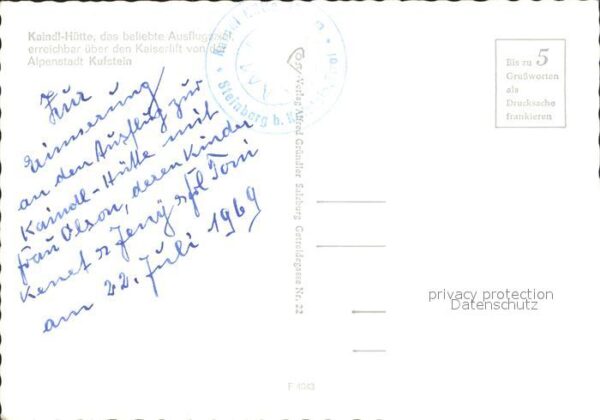 Kaindl-Hütte, das beliebte Ausflugsziel,
erreichbar über den Kaiserlift von der
Alpenstadt Kufstein
Zur
Erinnerung
an den Ausflug zur
Kaindl-Hütte mit
Frau Olson, deren Kinder
Kenet u Jeny u Frl Toni
am 22. Juli 1969
Steinberg b.
Verlag Alfred Gründler Salzburg Gstöttengasse Nr. 22
Bis zu 5
Grußworten
als
Drucksache
frankieren
privacy protection
Datenschutz